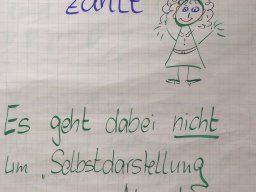 zählt
Es geht dabei nicht
um Selbstdarstellung